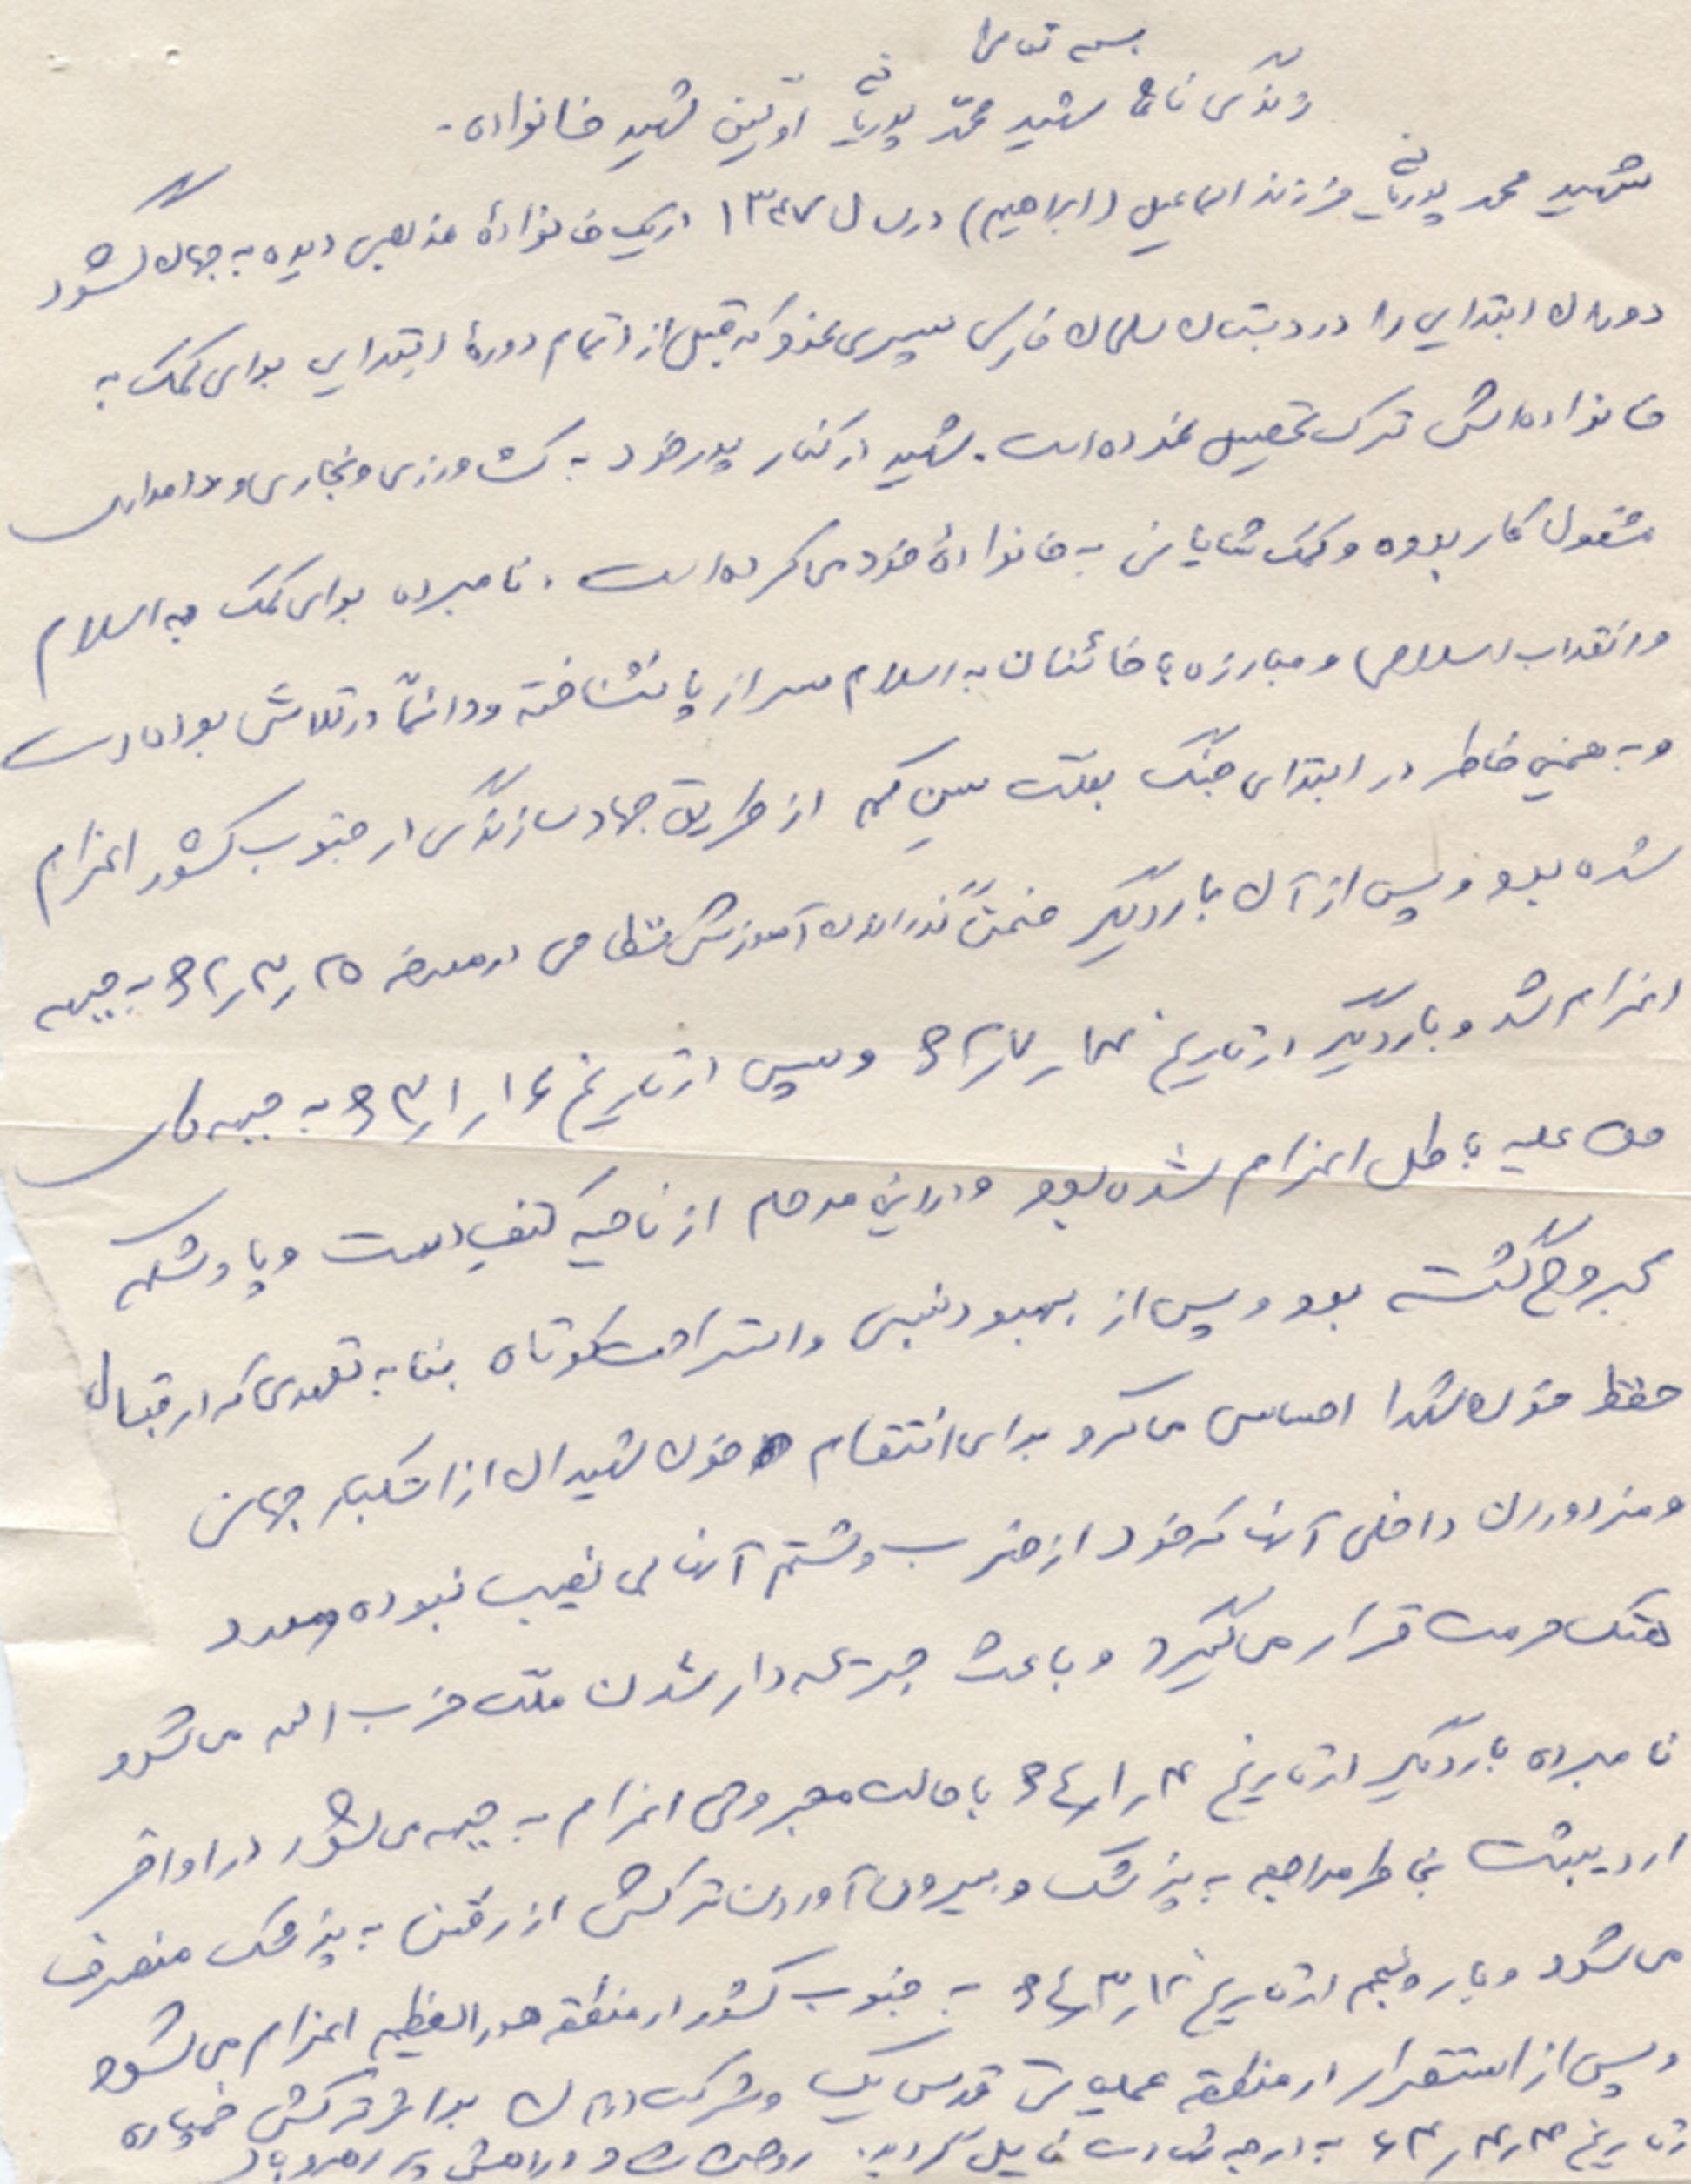 بسمه تعالی
زندگی نامه شهید محمد پوریانی اولین شهید خانواده.
شهید محمد پوریانی فرزند اسماعیل (ابراهیم) در سال ۱۳۴۷ در یک خانوادهٔ مذهبی دیده به جهان گشود
دوران ابتدایی را در دبستان سلمان فارسی سپری نمود که قبل از اتمام دورهٔ ابتدایی برای کمک به
خانواده‌اش ترک تحصیل نموده است. شهید در کنار پدر خود به کشاورزی و نجاری و دامداری
مشغول کار بوده و کمک شایانی به خانوادهٔ خود می کرده است. نامبرده برای کمک به اسلام
و انقلاب اسلامی و مبارزه با خائنان به اسلام سر از پا نشناخته و دائماً در تلاش بوده است
و به همین خاطر در ابتدای جنگ بعلت سن کم از طریق جهاد سازندگی در جنوب کشور اعزام
شده بود و پس از آن بار دیگر ضمن گذراندن آموزش نظامی در مورخه ۶۲٫۳٫۲۵ به جبهه
اعزام شد و بار دیگر در تاریخ ۶۲٫۷٫ و سپس در تاریخ ۶۳٫۱٫۱۶ به جبهه های
حق علیه باطل اعزام شده بود و در این مرحله از ناحیه کتف دست و پا و شکم
مجروح گشته بود و پس از بهبود نسبی و استراحت کوتاه بنا به تعهدی که در قبال
حفظ خون شهدا احساس می کرد برای انتقام خون شهیدان از استکبار جهانی
و مزدوران داخلی آنها که خود از ضرب و شتم آنها بی نصیب نبوده و مورد
هتک حرمت قرار می گیرد و باعث جریحه دار شدن ملت حزب الله می شود
نامبرده بار دیگر در تاریخ ۶۴٫۱٫۴ با حالت مجروحی اعزام به جبهه می شود در اواخر
اردیبهشت بخاطر مراجعه به پزشک و بیرون آوردن ترکش از رفتن به پزشک منصرف
می شود و بار پنجم در تاریخ ۶۴٫۳٫۱۲ به جنوب کشور در منطقه هورالعظیم اعزام می شود
و پس از استقرار در منطقه عملیاتی قدس یک و شرکت در آن بر اثر ترکش خمپاره
در تاریخ ۶۴٫۴٫۴ به درجه شهادت نایل گردید. روحش شاد و راهش پر رهرو باد